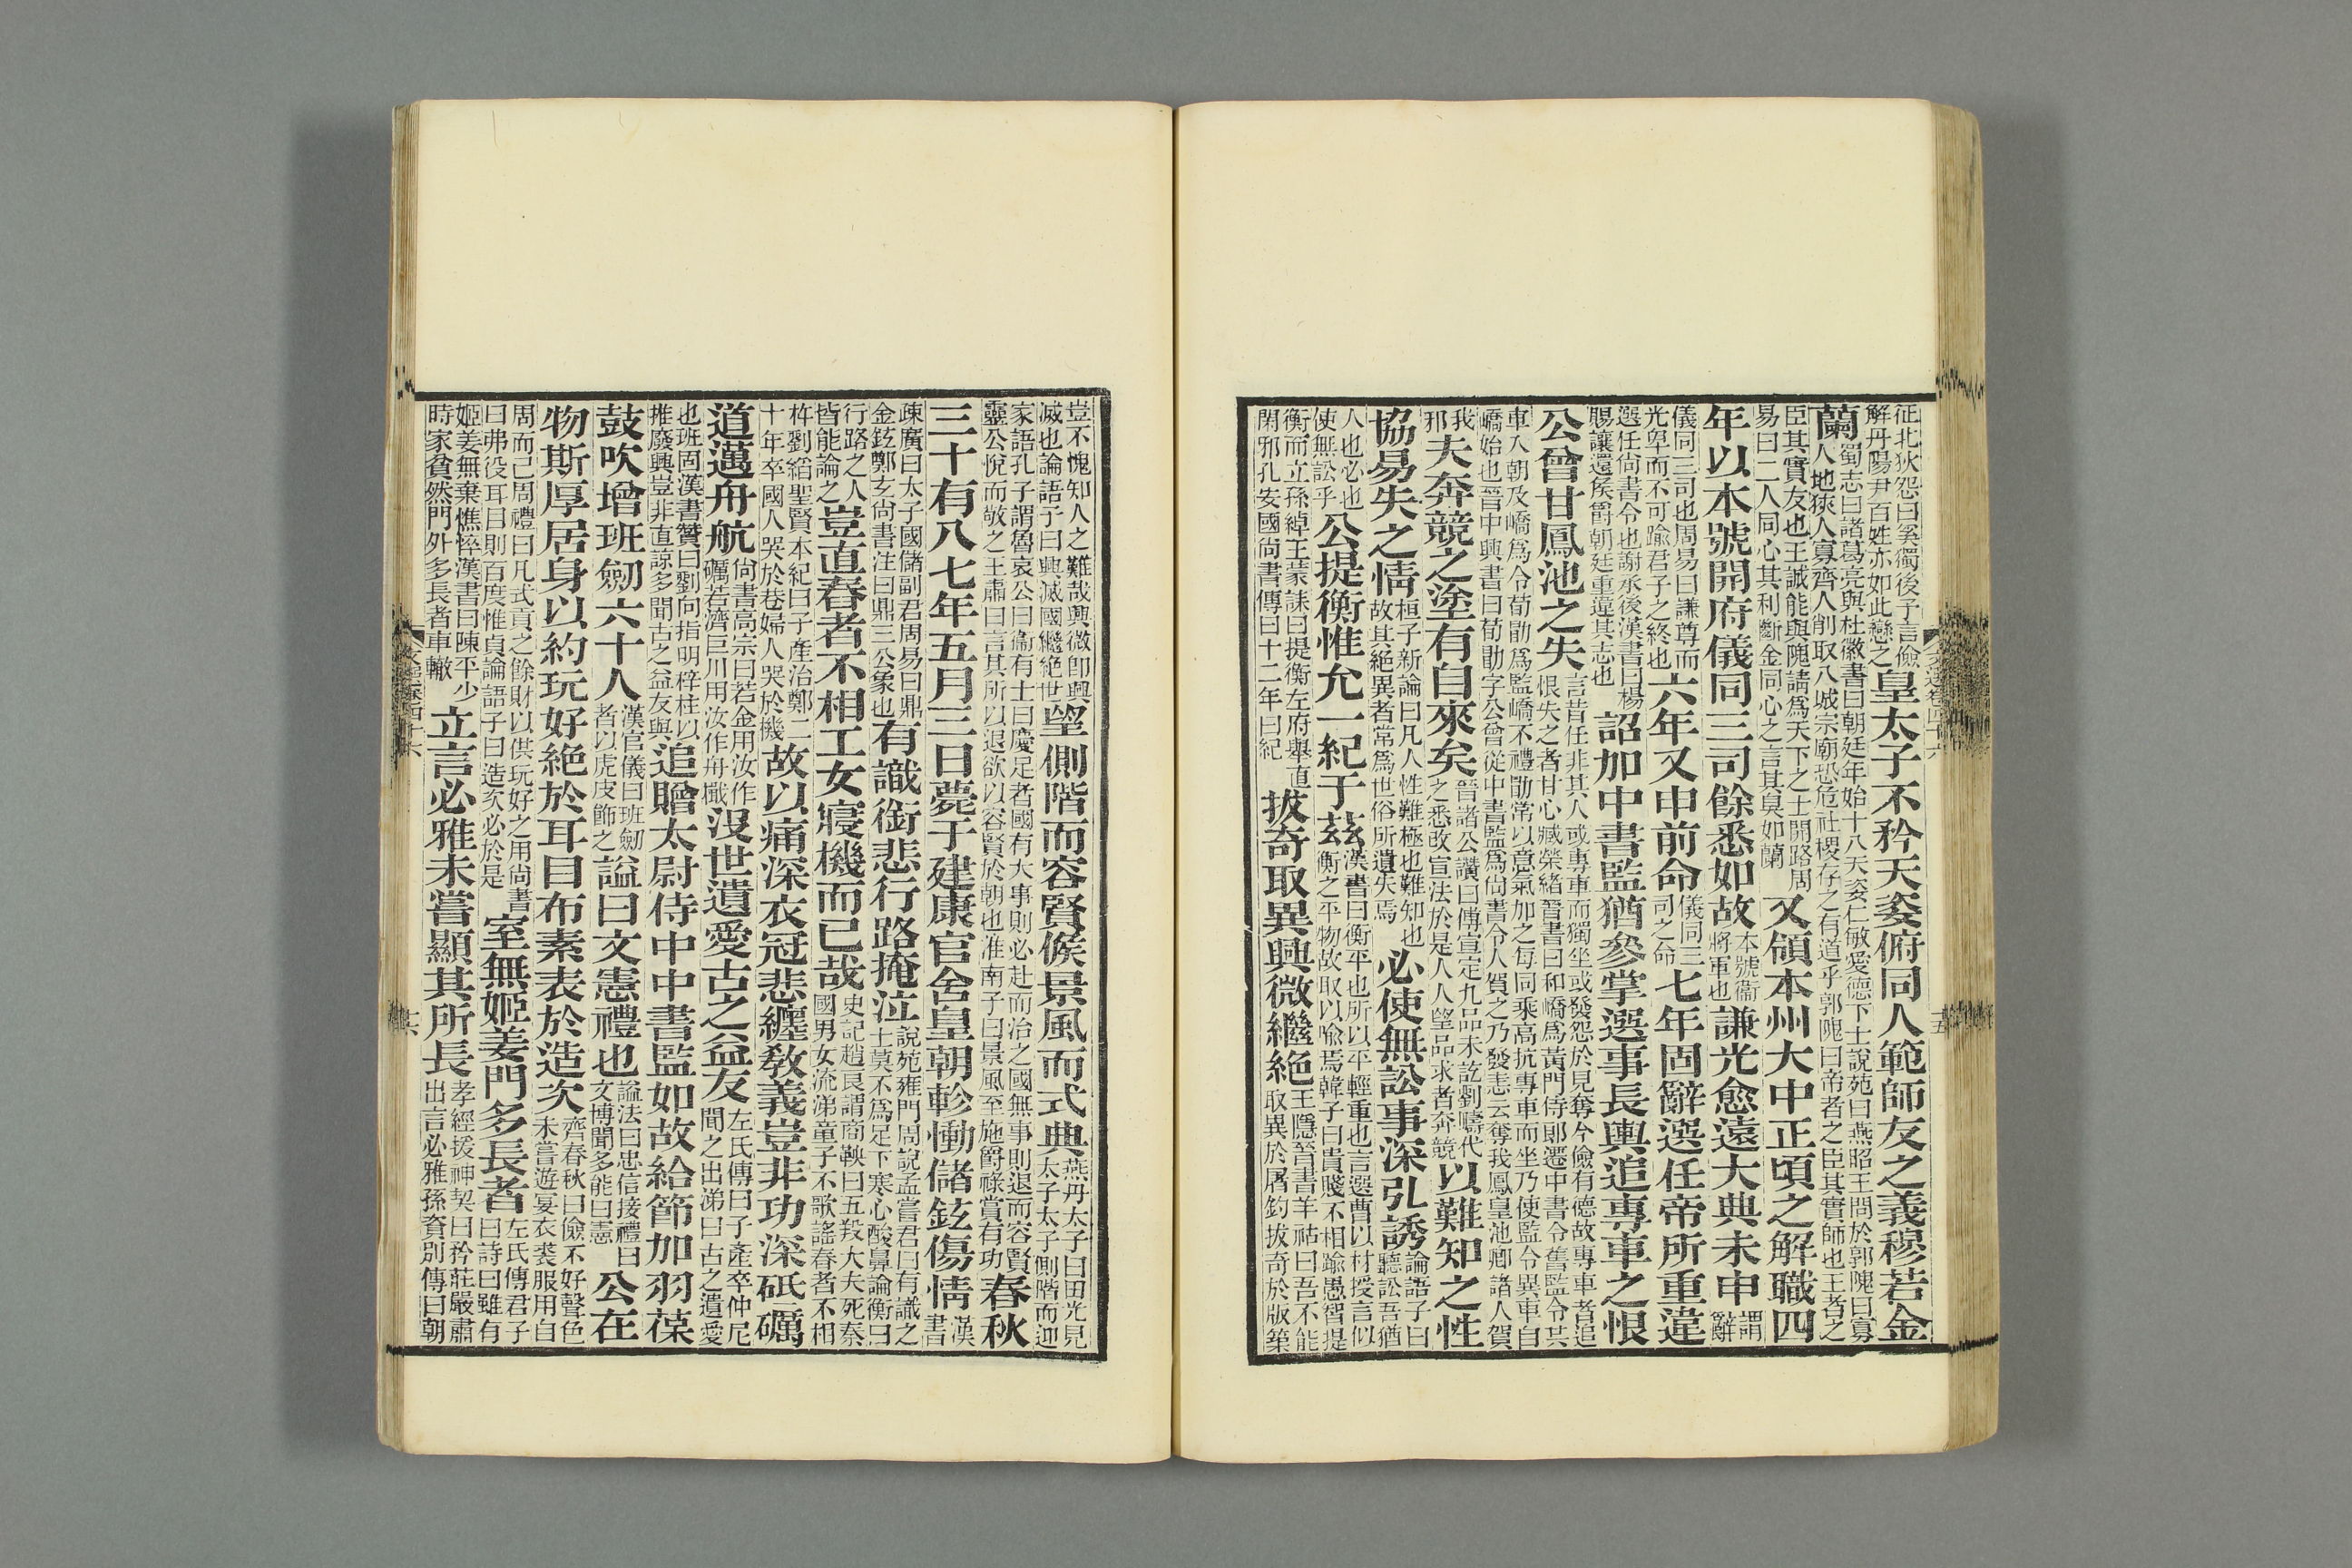 征北狄怨曰奚獨後予言儉解丹陽尹百姓亦如此戀之皇太子不矜天姿俯同人範師友之義穆若金
蘭蜀志曰諸葛亮與杜徽書曰朝廷年始十八天姿仁敏愛德下士說苑曰燕昭王問於郭隗曰寡人地狹人寡齊人削取八城宗廟恐危社稷存之有道乎郭隗曰帝者之臣其實師也王者之
臣其實友也王誠能與隗請爲天下之士開路周易曰二人同心其利斷金同心之言其臭如蘭又領本州大中正頃之解職四
年以本號開府儀同三司餘悉如故本號衞將軍也謙光愈遠大典未申謂辭
儀同三司也周易曰謙尊而光卑而不可踰君子之終也六年又申前命儀同三司之命七年固辭選任帝所重違
選任尚書令也謝承後漢書曰楊賜讓還侯爵朝廷重違其志也詔加中書監猶參掌選事長輿追專車之恨
公曾甘鳳池之失言昔任非其人或專車而獨坐或發怨於見奪今儉有德故專車者追恨失之者甘心臧榮緒晉書曰和嶠爲黃門侍郎遷中書令舊監令共
車入朝及嶠爲令荀勖爲監嶠不禮勖常以意氣加之每同乘高抗專車而坐乃使監令異車自嶠始也晉中興書曰荀勖字公曾從中書監爲尚書令人賀之乃發恚云奪我鳳皇池卿諸人賀
我邪夫奔競之塗有自來矣晉諸公讚曰傅宣定九品未訖劉疇代之悉改宣法於是人人望品求者奔競以難知之性
協易失之情桓子新論曰凡人性難極也難知也故其絕異者常爲世俗所遺失焉必使無訟事深弘誘論語子曰聽訟吾猶
人也必也使無訟乎公提衡惟允一紀于茲漢書曰衡平也所以平輕重也言選曹以材授言似衡之平物故取以喻焉韓子曰貴賤不相踰愚智提
衡而立孫綽王蒙誄曰提衡左府舉直閑邪孔安國尚書傳曰十二年曰紀拔奇取異興微繼絕王隱晉書羊祜曰吾不能取異於屠釣拔奇於版築
豈不愧知人之難哉興微卽興滅也論語子曰興滅國繼絕世望側階而容賢候景風而式典燕丹太子曰田光見太子太子側階而迎
家語孔子謂魯哀公曰衞有士曰慶足者國有大事則必赴而治之國無事則退而容賢靈公悅而敬之王肅曰言其所以退欲以容賢於朝也淮南子曰景風至施爵祿賞有功春秋
三十有八七年五月三日薨于建康官舍皇朝軫慟儲鉉傷情漢書
疎廣曰太子國儲副君周易曰鼎金鉉鄭玄尚書注曰鼎三公象也有識銜悲行路掩泣說苑雍門周說孟嘗君曰有識之士莫不爲足下寒心酸鼻論衡曰
行路之人皆能論之豈直舂者不相工女寢機而已哉史記趙良謂商鞅曰五羖大夫死秦國男女流涕童子不歌謠舂者不相
杵劉縚聖賢本紀曰子產治鄭二十年卒國人哭於巷婦人哭於機故以痛深衣冠悲纏敎義豈非功深砥礪
道邁舟航尚書高宗曰若金用汝作礪若濟巨川用汝作舟檝沒世遺愛古之益友左氏傳曰子產卒仲尼聞之出涕曰古之遺愛
也班固漢書贊曰劉向指明梓柱以推廢興豈非直諒多聞古之益友與追贈太尉侍中中書監如故給節加羽葆
鼓吹增班劒六十人漢官儀曰班劒者以虎皮飾之諡曰文憲禮也諡法曰忠信接禮曰文博聞多能曰憲公在
物斯厚居身以約玩好絕於耳目布素表於造次齊春秋曰儉不好聲色未嘗遊宴衣裘服用自
周而已周禮曰凡式貢之餘財以供玩好之用尚書曰弗役耳目則百度惟貞論語子曰造次必於是室無姬姜門多長者左氏傳君子曰詩曰雖有
姬姜無棄憔悴漢書曰陳平少時家貧然門外多長者車轍立言必雅未嘗顯其所長孝經援神契曰矜莊嚴肅出言必雅孫資別傳曰朝